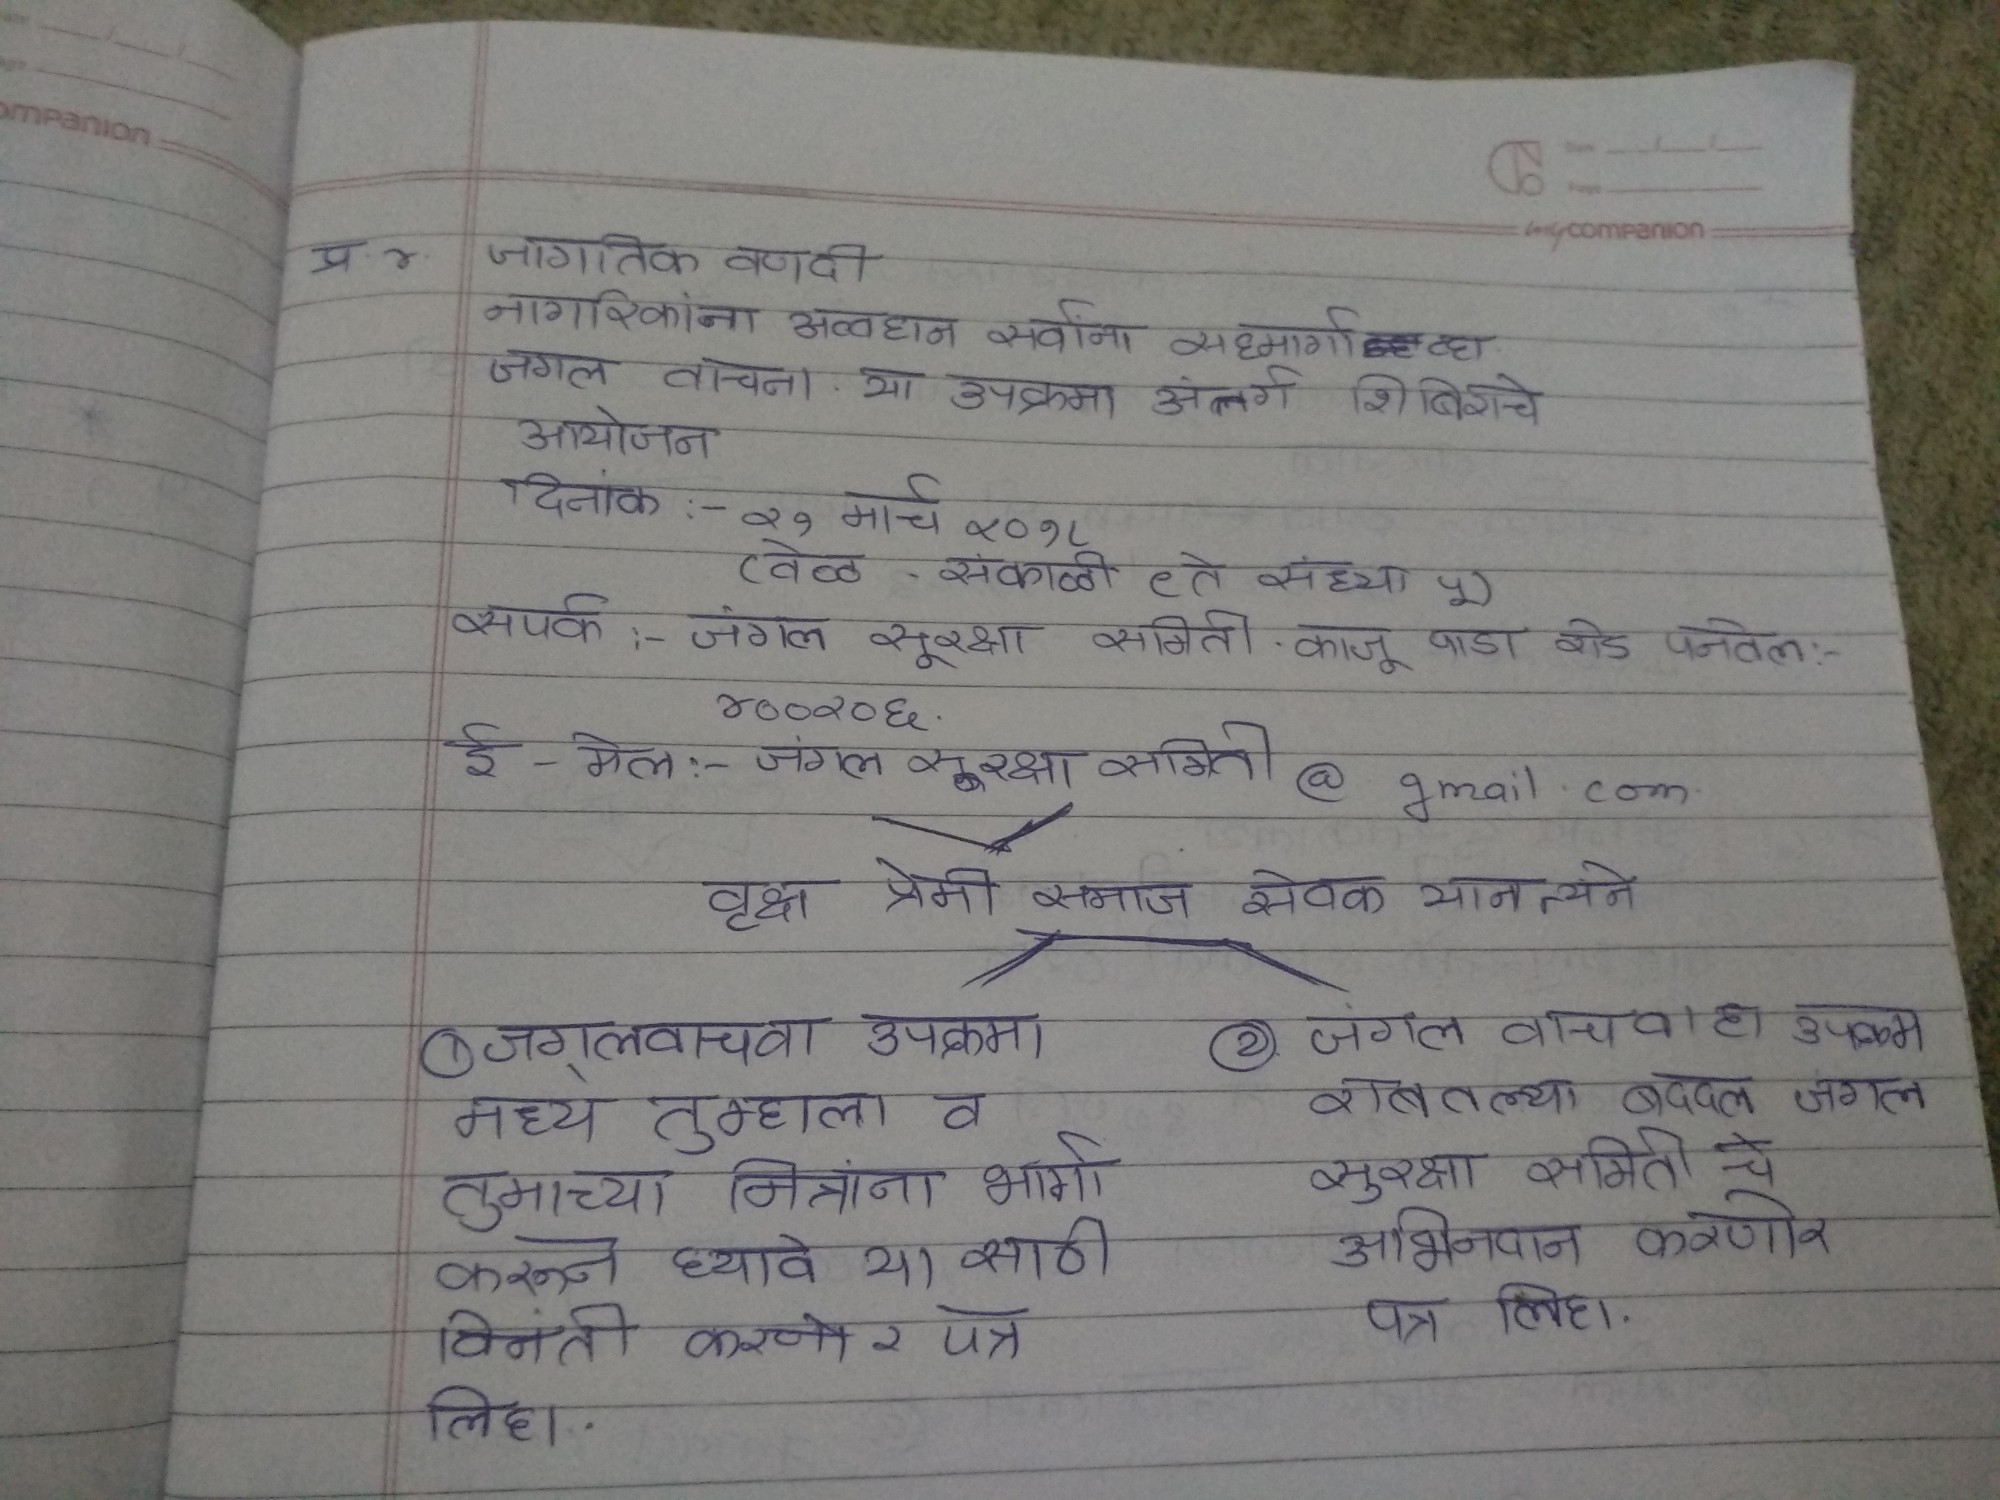 ompanion
mycompanion
प्र.४. जागतिक वणदी
नागरिकांना अव्वहान सर्वांना सहभागी व्हा.
जगल वाचना. या उपक्रमा अंतर्ग शिबिराचे
आयोजन
दिनांक :- २१ मार्च २०१८
(वेळ - संकाळी ९ ते संध्या ५)
सपर्क :- जंगल सूरक्षा समिती. काजू पाडा रोड पनवेल:-
४००२०६.
ई - मेल:- जंगल सुरक्षा समिती @ gmail.com.
वृक्ष प्रेमी समाज सेवक यानत्यने
① जग्लवाचवा उपक्रमा
मध्ये तुम्हाला व
तुमाच्या मित्रांना भागी
करून घ्यावे या साठी
विनंती करणोर पत्र
लिहा.
② जंगल वाचवा हा उपक्रम
राबतल्या बददल जंगल
सुरक्षा समिती चे
अभिनपान करणोर
पत्र लिहा.